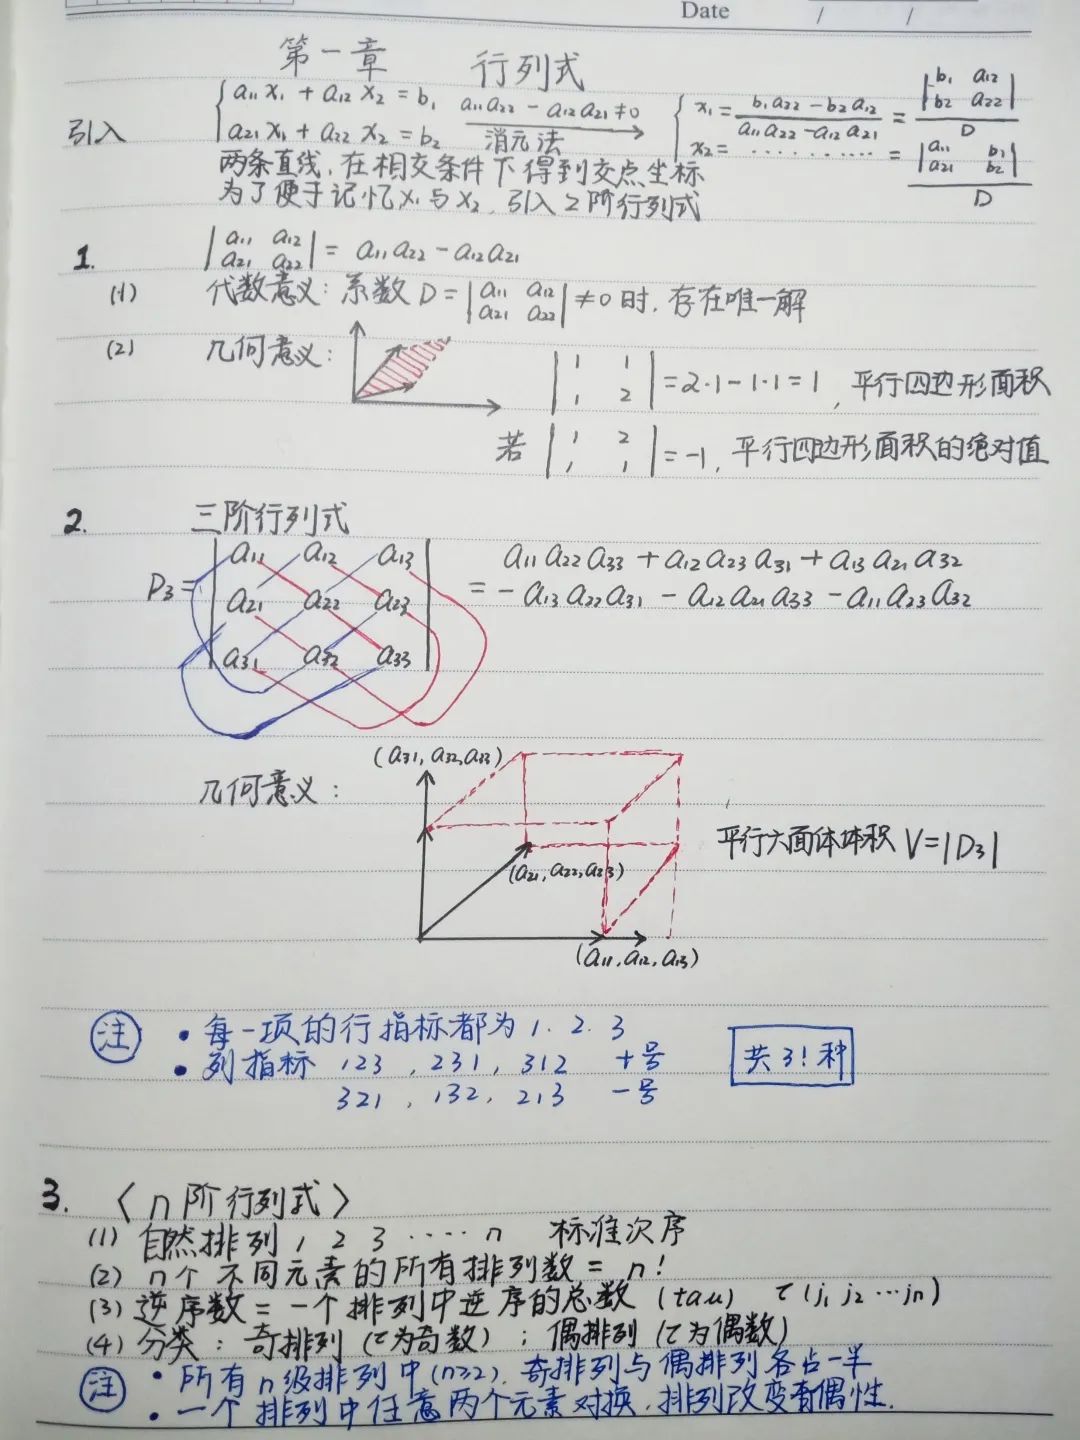 Date / /
第一章 行列式
引入 { a11 x1 + a12 x2 = b1
a21 x1 + a22 x2 = b2
a11a22 - a12a21 ≠ 0
消元法
{ x1 = (b1a22 - b2a12) / (a11a22 - a12a21) = |b1 a12 b2 a22| / D
x2 = ··········· = |a11 b1 a21 b2| / D
两条直线,在相交条件下得到交点坐标
为了便于记忆x1与x2,引入2阶行列式
1. |a11 a12 a21 a22| = a11a22 - a12a21
(1) 代数意义: 系数D = |a11 a12 a21 a22| ≠ 0时,存在唯一解
(2) 几何意义: |1 1 1 2| = 2·1 - 1·1 = 1, 平行四边形面积
若 |1 2 1 1| = -1, 平行四边形面积的绝对值
2. 三阶行列式
D3 = |a11 a12 a13
a21 a22 a23
a31 a32 a33|
= a11a22a33 + a12a23a31 + a13a21a32
- a13a22a31 - a12a21a33 - a11a23a32
几何意义:
(a31, a32, a33)
(a21, a22, a23)
(a11, a12, a13)
平行六面体体积 V = |D3|
注 · 每一项的行指标都为1.2.3
· 列指标 123, 231, 312 +号
321, 132, 213 -号
共3!种
3. 〈n阶行列式〉
(1) 自然排列 1 2 3 ····· n 标准次序
(2) n个不同元素的所有排列数 = n!
(3) 逆序数 = 一个排列中逆序的总数 (tau) τ(j1 j2 ··· jn)
(4) 分类: 奇排列 (τ为奇数); 偶排列 (τ为偶数)
注 · 所有n级排列中(n≥2), 奇排列与偶排列各占一半
· 一个排列中任意两个元素对换,排列改变奇偶性.